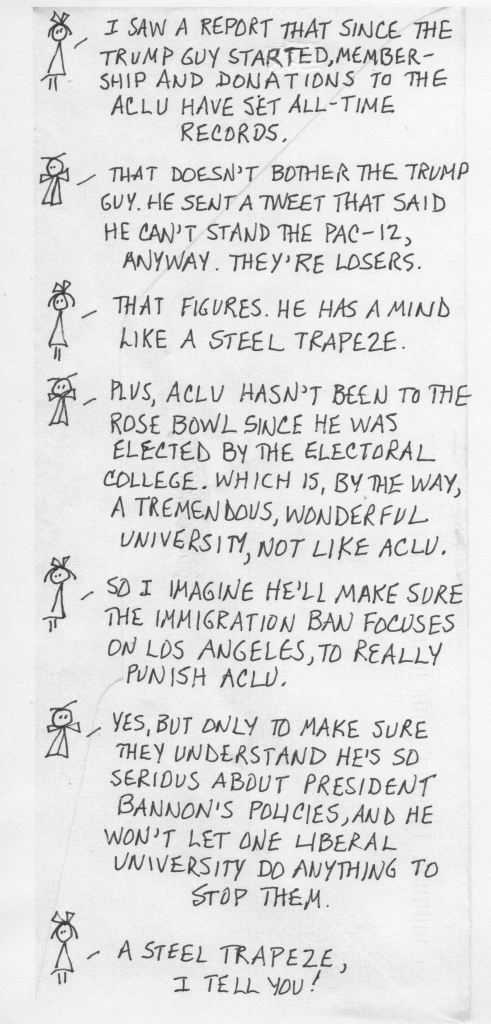 I SAW A REPORT THAT SINCE THE
TRUMP GUY STARTED, MEMBER-
SHIP AND DONATIONS TO THE
ACLU HAVE SET ALL-TIME
RECORDS.
THAT DOESN'T BOTHER THE TRUMP
GUY. HE SENT A TWEET THAT SAID
HE CAN'T STAND THE PAC-12,
ANYWAY. THEY'RE LOSERS.
THAT FIGURES. HE HAS A MIND
LIKE A STEEL TRAPEZE.
PLUS, ACLU HASN'T BEEN TO THE
ROSE BOWL SINCE HE WAS
ELECTED BY THE ELECTORAL
COLLEGE. WHICH IS, BY THE WAY,
A TREMENDOUS, WONDERFUL
UNIVERSITY, NOT LIKE ACLU.
SO I IMAGINE HE'LL MAKE SURE
THE IMMIGRATION BAN FOCUSES
ON LOS ANGELES, TO REALLY
PUNISH ACLU.
YES, BUT ONLY TO MAKE SURE
THEY UNDERSTAND HE'S SO
SERIOUS ABOUT PRESIDENT
BANNON'S POLICIES, AND HE
WON'T LET ONE LIBERAL
UNIVERSITY DO ANYTHING TO
STOP THEM.
A STEEL TRAPEZE,
I TELL YOU!